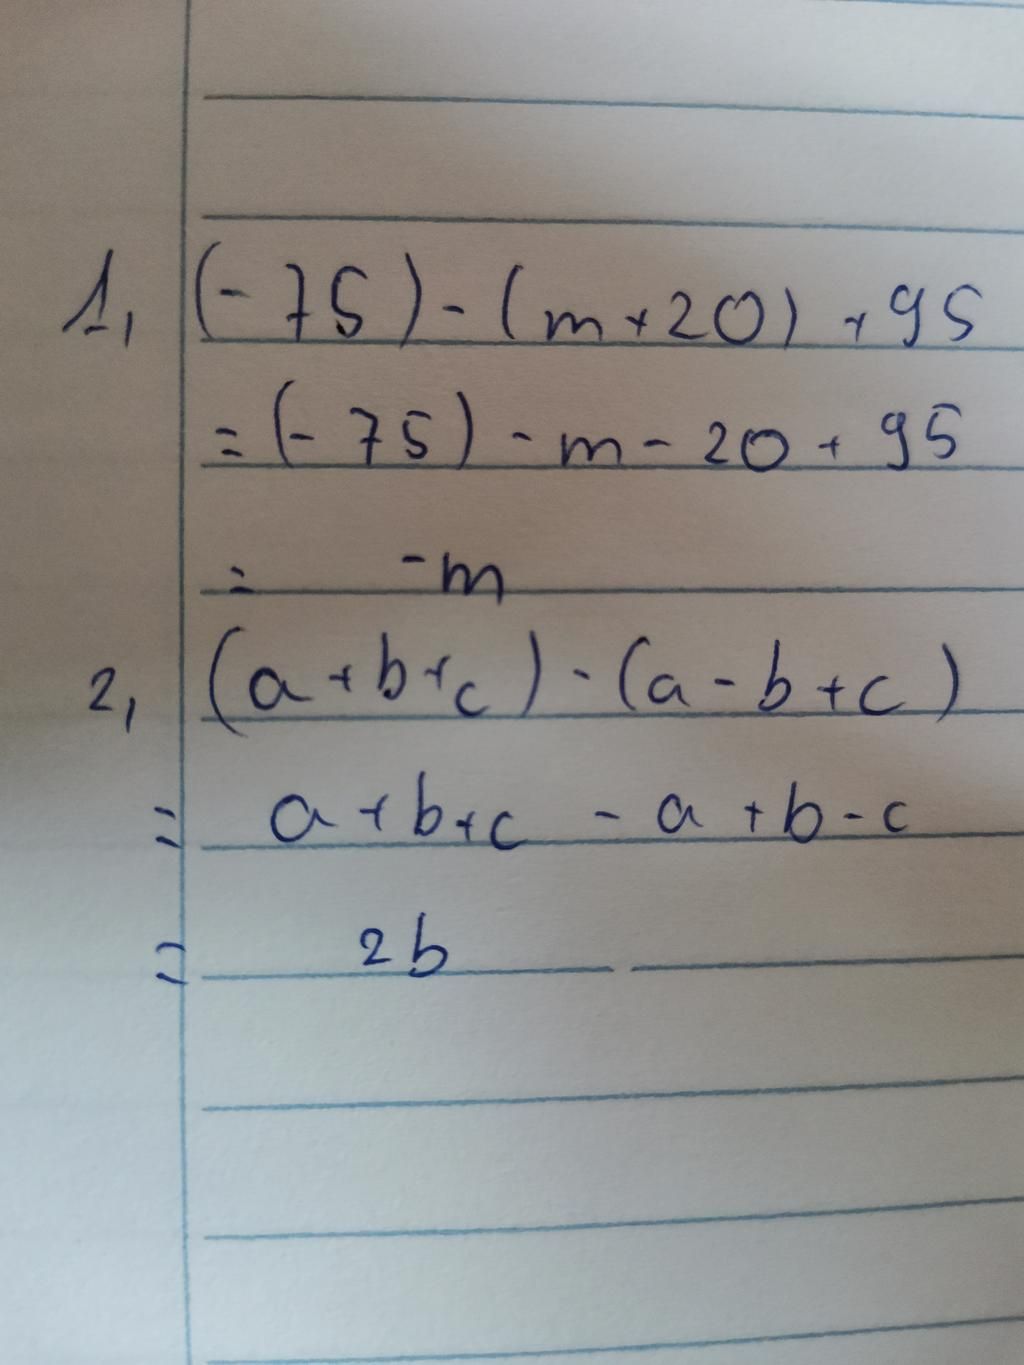 1, (-75)-(m+20)+95
=(-75)-m-20+95
= -m
2, (a+b+c)-(a-b+c)
= a+b+c-a+b-c
= 2b